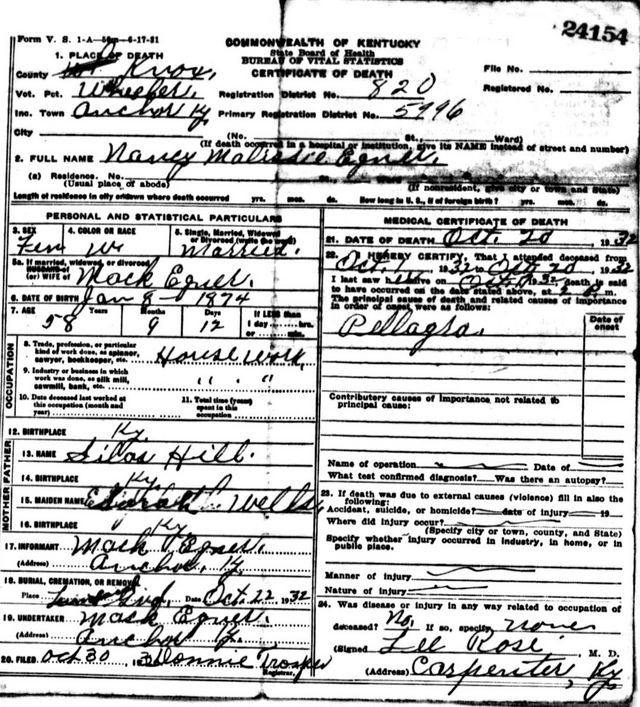 Form V. S. 1-A 6-17-21
24154
COMMONWEALTH OF KENTUCKY
State Board of Health
BUREAU OF VITAL STATISTICS
CERTIFICATE OF DEATH
1. PLACE OF DEATH
County Knox,
Vot. Pct. Wheeler,
Inc. Town Anchor Ky
City
File No.
Registered No.
Registration District No. 820
Primary Registration District No. 5996
(No. St. Ward)
(If death occurred in a hospital or institution, give its NAME instead of street and number)
2. FULL NAME Nancy Egner.
(a) Residence. No. St., Ward,
(Usual place of abode) (If nonresident, give city or town and State)
Length of residence in city or town where death occurred yrs. mos. ds. How long in U. S., if of foreign birth? yrs. mos. ds.
PERSONAL AND STATISTICAL PARTICULARS
3. SEX 4. COLOR OR RACE 5. Single, Married, Widowed or Divorced (write the word)
Fem W. Married.
5a. If married, widowed, or divorced
HUSBAND of
(or) WIFE of Mack Egner.
6. DATE OF BIRTH Jan 8 - 1874
7. AGE Years Months Days If LESS than
58 9 12 1 day hrs.
or min.
OCCUPATION
8. Trade, profession, or particular
kind of work done, as spinner,
sawyer, bookkeeper, etc. House work,
9. Industry or business in which
work was done, as silk mill,
sawmill, bank, etc. " "
10. Date deceased last worked at
this occupation (month and
year)
11. Total time (years)
spent in this
occupation
12. BIRTHPLACE Ky.
FATHER
13. NAME Silas Hill.
14. BIRTHPLACE Ky.
MOTHER
15. MAIDEN NAME Sarah Wells,
16. BIRTHPLACE " Ky
17. INFORMANT Mack Egner.
(Address) Anchor, Ky
18. BURIAL, CREMATION, OR REMOVAL
Place Date Oct. 22 1932
19. UNDERTAKER Mack Egner.
(Address) Anchor Ky.
20. FILED Oct 30 Donnie Trosper
Registrar.
MEDICAL CERTIFICATE OF DEATH
21. DATE OF DEATH Oct. 20 1932
22. I HEREBY CERTIFY, That I attended deceased from
Oct. 1932 to Oct 20 1932
I last saw h alive on 32 death is said
to have occurred on the date stated above, at m.
The principal cause of death and related causes of importance
in order of onset were as follows:
Date of
onset
Pellagra.
Contributory causes of importance not related to
principal cause:
Name of operation Date of
What test confirmed diagnosis? Was there an autopsy?
23. If death was due to external causes (violence) fill in also the
following:
Accident, suicide, or homicide? date of injury 19
Where did injury occur?
(Specify city or town, county, and State)
Specify whether injury occurred in industry, in home, or in
public place.
Manner of injury
Nature of injury
24. Was disease or injury in any way related to occupation of
deceased? No. If so, specify none
(Signed Lee Rose, M. D.
(Address) Carpenter, Ky